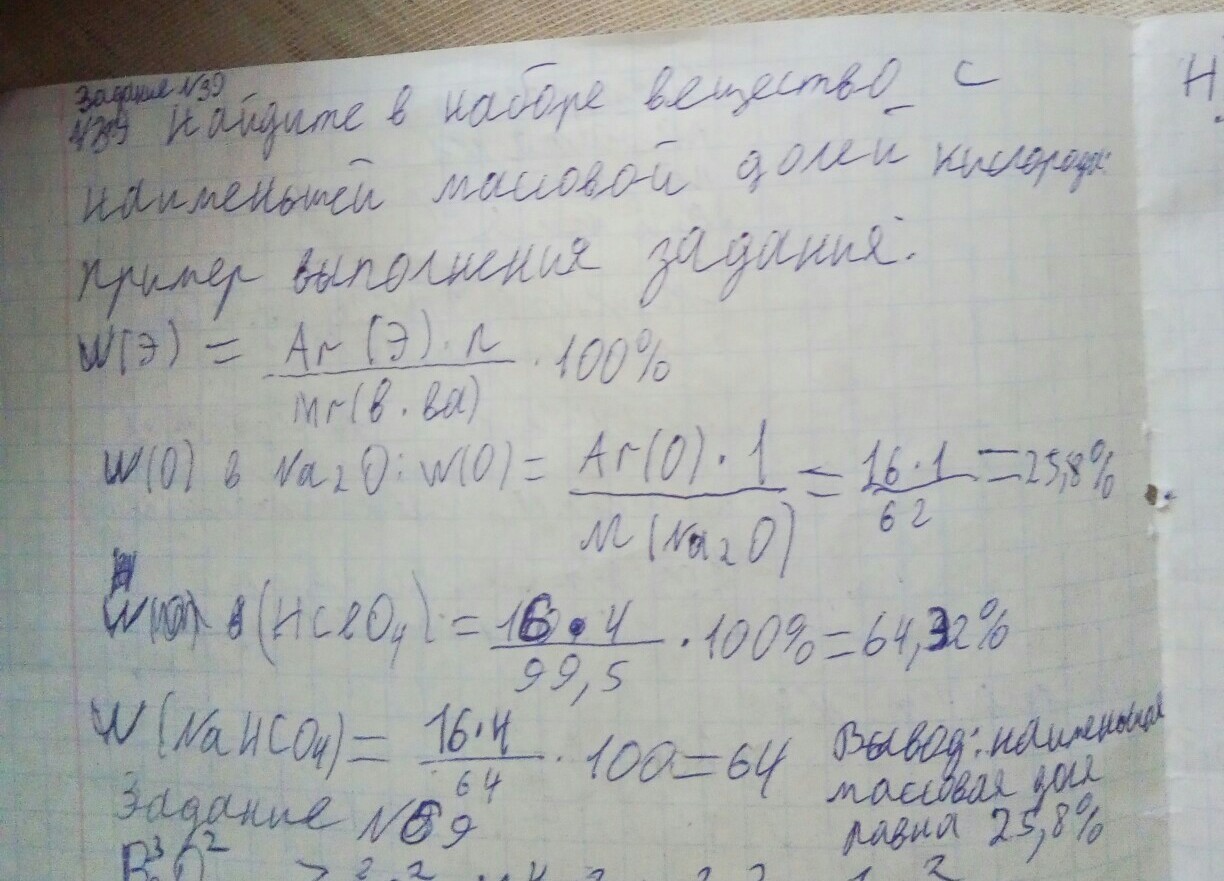 Задание №39
Найдите в наборе вещество с
наименьшей массовой долей кислорода:
Пример выполнения задания:
W(Э) = Ar(Э)·n / Mr(в.ва) · 100%
W(O) в Na₂O: W(O) = Ar(O)·1 / M(Na₂O) = 16·1 / 62 = 25,8%
W(O) в (HClO₄) = 16·4 / 99,5 · 100% = 64,32%
W(NaHCO₄) = 16·4 / 64 · 100 = 64
Вывод: наименьшая
массовая доля
равна 25,8%
Задание №59
Н